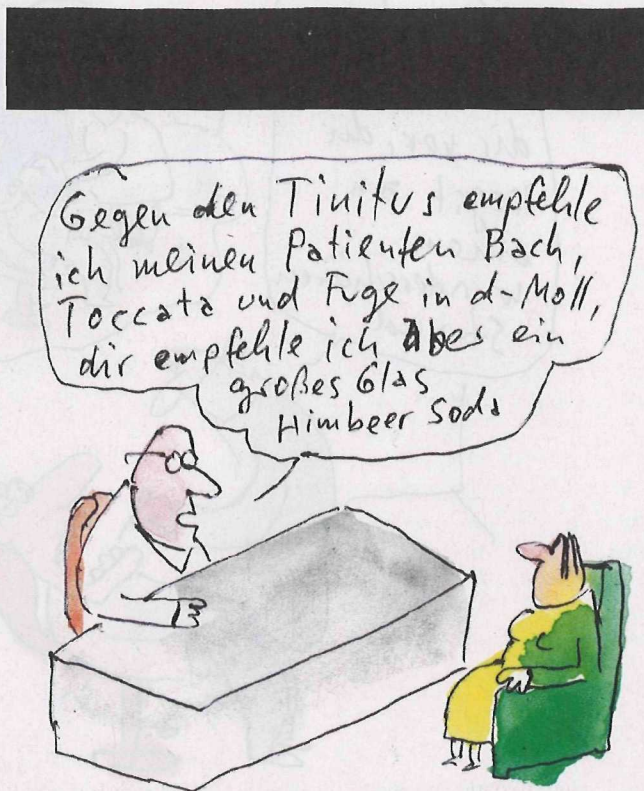 Gegen den Tinitus empfehle
ich meinen Patienten Bach,
Toccata und Fuge in d-Moll,
dir empfehle ich Aber ein
großes Glas
Himbeer Soda